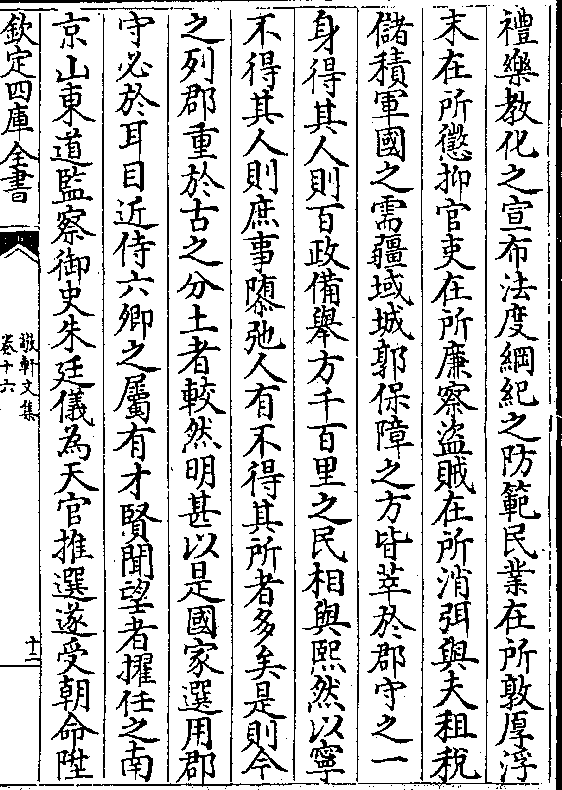 禮樂教化之宣布法度綱紀之防範民業在所敦厚浮
末在所懲抑官吏在所廉察盜賊在所消弭與夫租稅
儲積軍國之需疆域城郭保障之方皆萃於郡守之一
身得其人則百政備舉方千百里之民相與熙然以寧
不得其人則庶事隳弛人有不得其所者多矣是則今
之列郡重於古之分土者較然明甚以是國家選用郡
守必於耳目近侍六卿之屬有才賢聞望者擢任之南
京山東道監察御史朱廷儀為天官推選遂受朝命陞
欽定四庫全書
敬軒文集
卷十六
十二